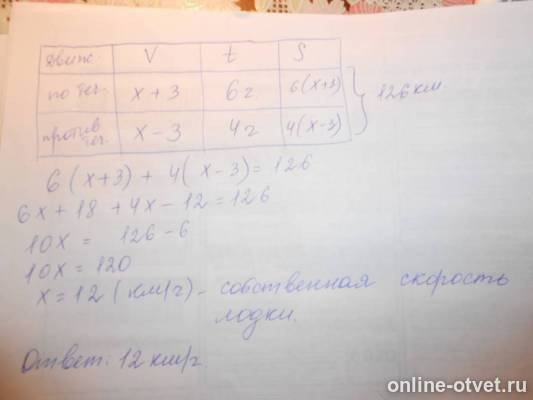 движ. V t S
по теч. x + 3 6ч 6(x+3)
против теч. x - 3 4ч 4(x-3)
126 км
6(x+3) + 4(x-3) = 126
6x + 18 + 4x - 12 = 126
10x = 126 - 6
10x = 120
x = 12 (км/ч) - собственная скорость
лодки.
Ответ: 12 км/ч
online-otvet.ru